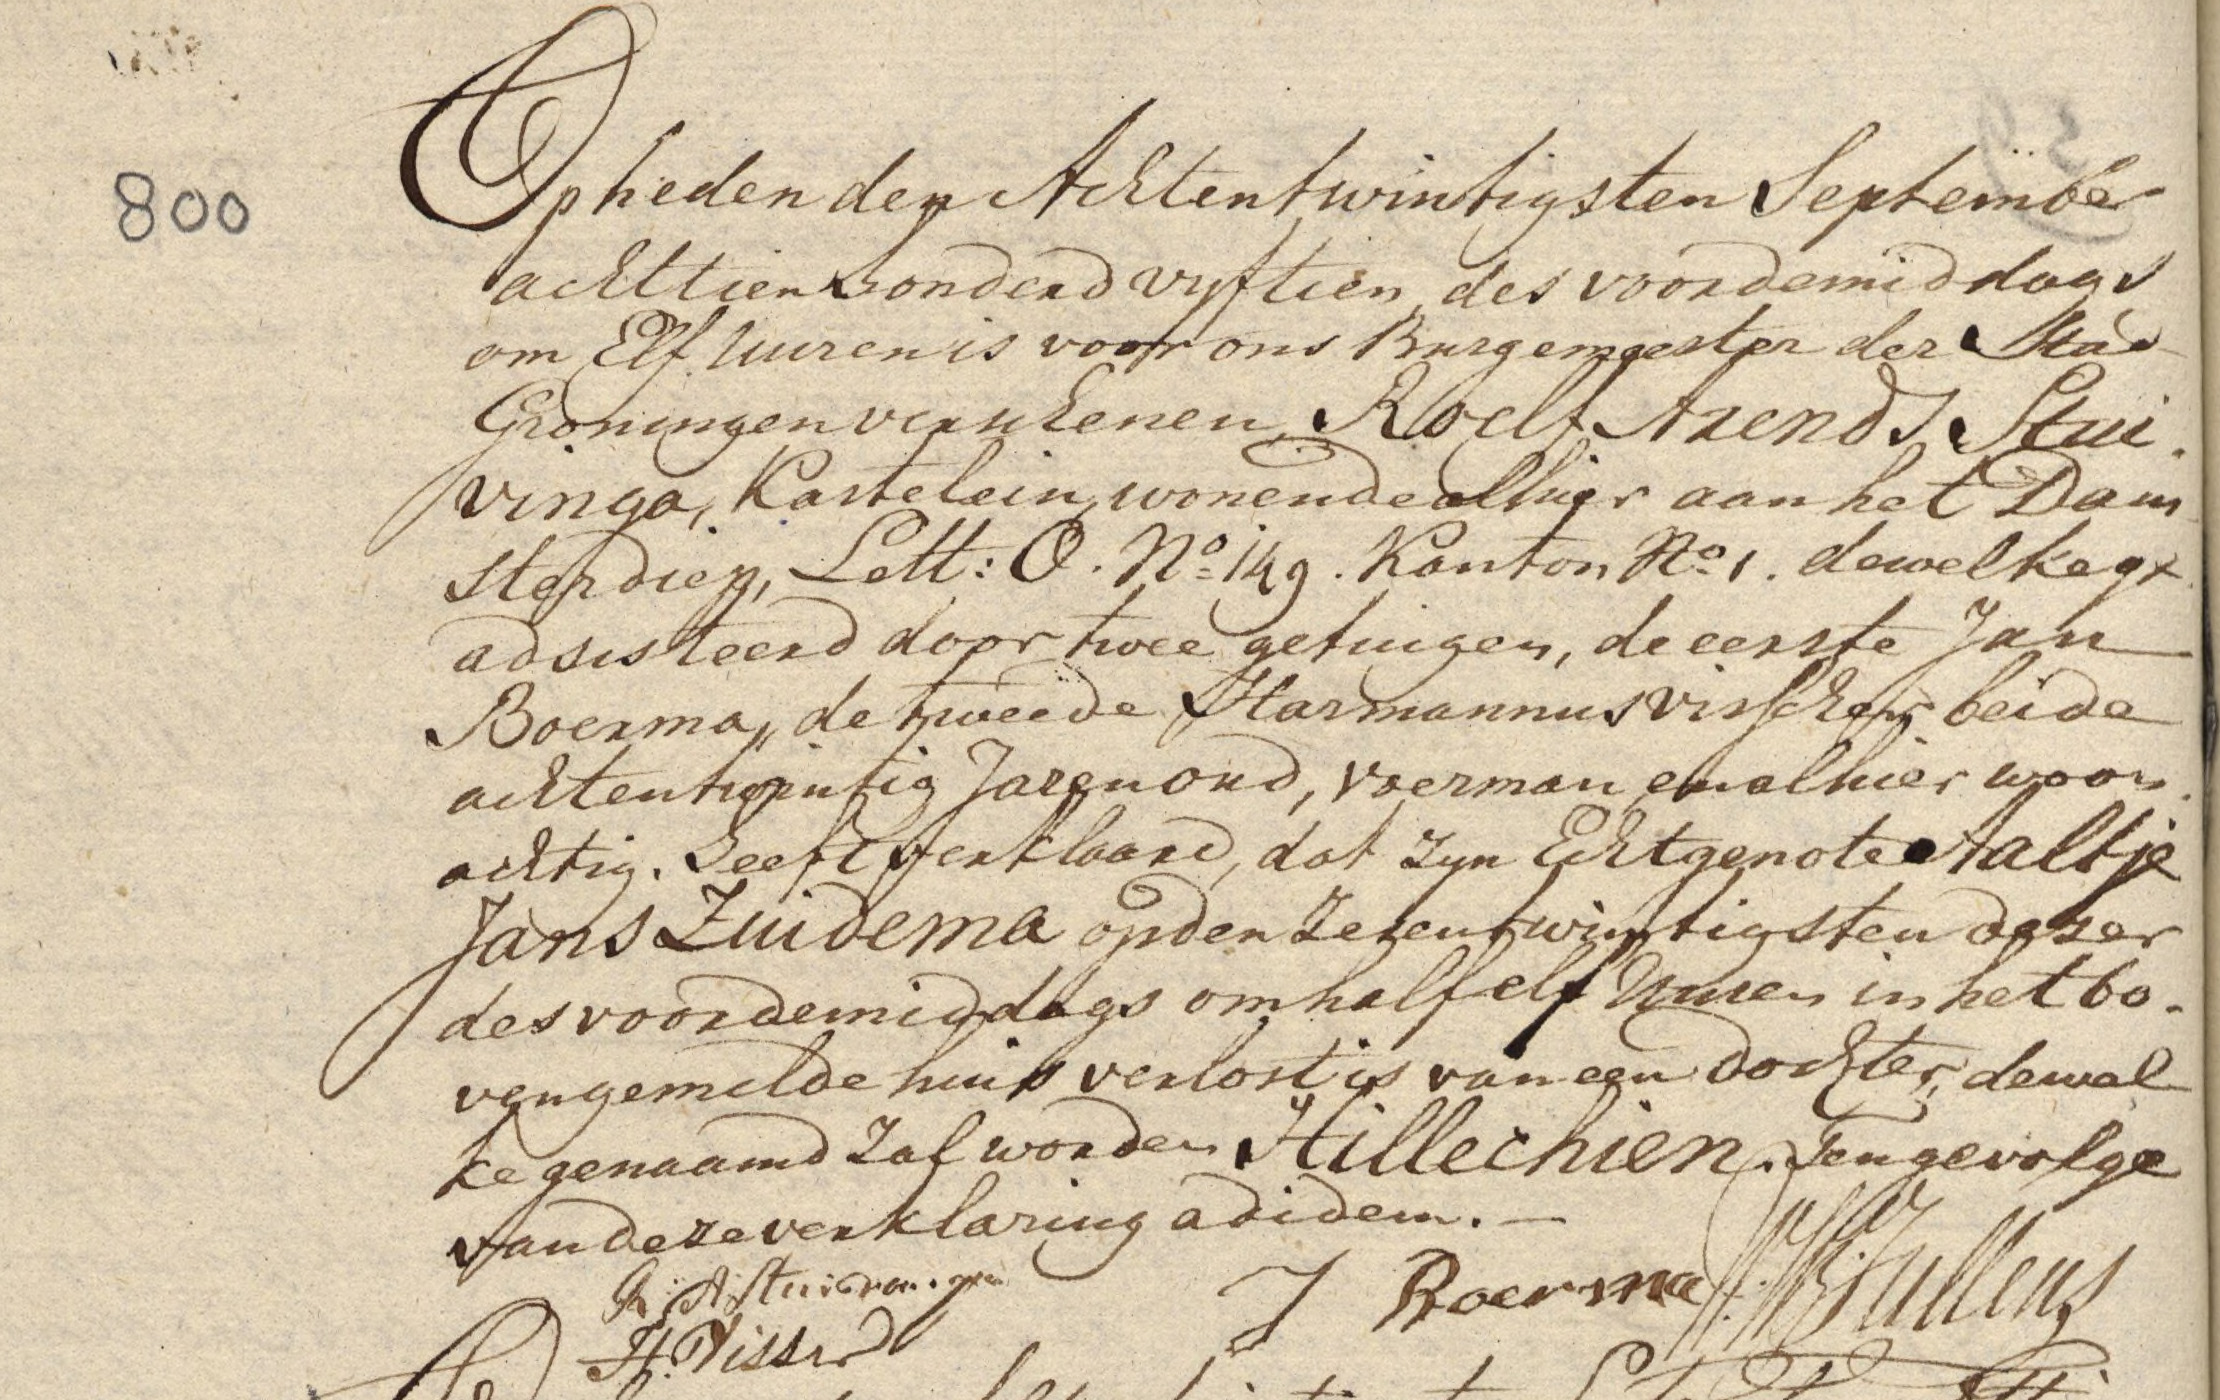 800
Op heden den Achtentwintigsten September
achttienhonderd vyftien, des voordemiddags
om Elf Uuren is voor ons Burgemeester der Stad
Groningen verschenen, Roelf Arends Stui-
vinga, Kastelein, wonende alhier aan het Dam
sterdiep, Lett: O. No. 149. Kanton No. 1. dewelke ge-
adsisteerd door twee getuigen, de eerste Jan
Boerma, de tweede Harmannus visscher beide
achtentwintig Jaren oud, voerman, en alhier woon-
achtig. heeft verklaard, dat zyn Echtgenote Aaltje
Jans Zuidema op den Zevenentwintigsten dezer
des voordemiddags om half elf Uuren in het bo-
vengemelde huis verlost is van een dochter, dewel
ke genaamd zal worden Hillechien. Ten gevolge
van deze verklaring ad idem. —
R. A. Stuivinga J Boerma
H. Visser